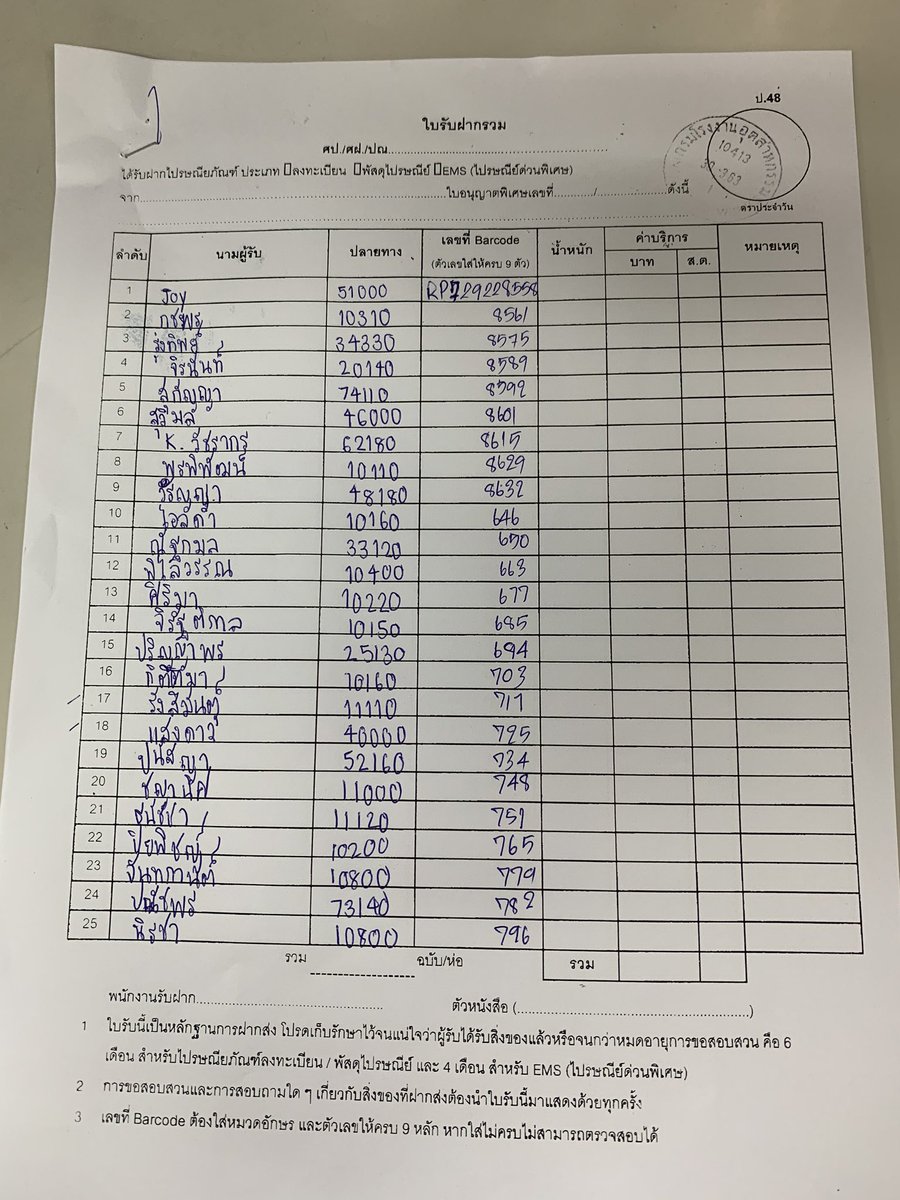 ป.48
ใบรับฝากรวม
ศป./ศฝ./ปณ.
กรมโรงงานอุตสาหกรรม
10413
ได้รับฝากไปรษณียภัณฑ์ ประเภท ลงทะเบียน พัสดุไปรษณีย์ EMS (ไปรษณีย์ด่วนพิเศษ)
จาก ใบอนุญาตพิเศษเลขที่ / ดังนี้
ตราประจำวัน
ลำดับ นามผู้รับ ปลายทาง เลขที่ Barcode (ตัวเลขใส่ให้ครบ 9 ตัว) น้ำหนัก ค่าบริการ บาท ส.ต. หมายเหตุ
1 Joy 51000 RP729228558
2 กชพร 10310 8561
3 รุ่งทิพย์ 34330 8575
4 จิรนันท์ 20140 8589
5 สุกัญญา 74110 8592
6 46000 8601
7 K. วัชรากร 62180 8615
8 พรพิพัฒน์ 10110 8629
9 48180 8632
10 ไอลดา 10160 646
11 ณัฐกมล 33120 650
12 วิไลวรรณ 10400 663
13 ศิริมา 10220 677
14 10150 685
15 ปริญญาพร 25130 694
16 กิตติมา 10160 703
17 รังสิมันตุ์ 11110 717
18 แสงดาว 46000 725
19 52160 734
20 ชญานิศ 11000 748
21 ธนัชชา 11120 751
22 ปิยพิชญ์ 10200 765
23 จันทกานต์ 10800 779
24 ปณัชพร 73140 782
25 นิรชา 10800 796
รวม ฉบับ/ห่อ รวม
พนักงานรับฝาก ตัวหนังสือ ( )
1 ใบรับนี้เป็นหลักฐานการฝากส่ง โปรดเก็บรักษาไว้จนแน่ใจว่าผู้รับได้รับสิ่งของแล้วหรือจนกว่าหมดอายุการขอสอบสวน คือ 6
เดือน สำหรับไปรษณียภัณฑ์ลงทะเบียน / พัสดุไปรษณีย์ และ 4 เดือน สำหรับ EMS (ไปรษณีย์ด่วนพิเศษ)
2 การขอสอบสวนและการสอบถามใด ๆ เกี่ยวกับสิ่งของที่ฝากส่งต้องนำใบรับนี้มาแสดงด้วยทุกครั้ง
3 เลขที่ Barcode ต้องใส่หมวดอักษร และตัวเลขให้ครบ 9 หลัก หากใส่ไม่ครบไม่สามารถตรวจสอบได้